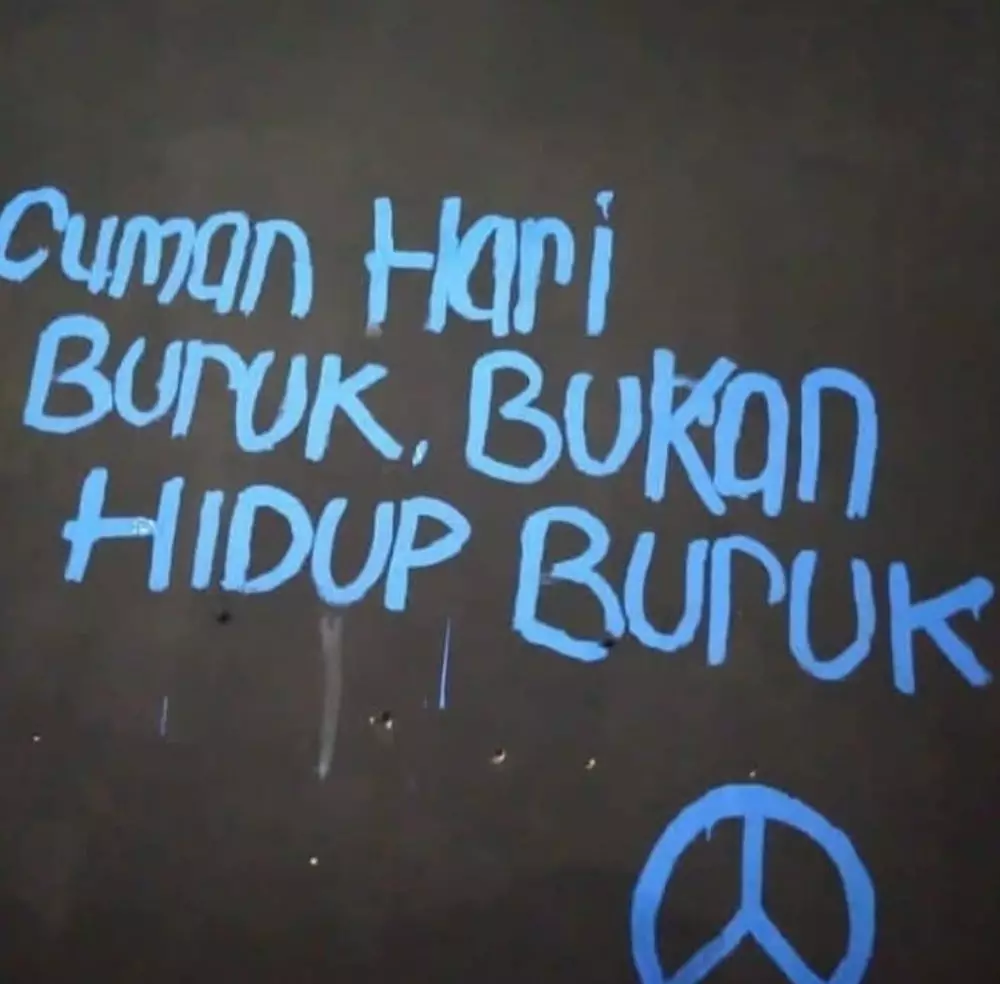 Cuman Hari
Buruk, Bukan
HIDUP Buruk